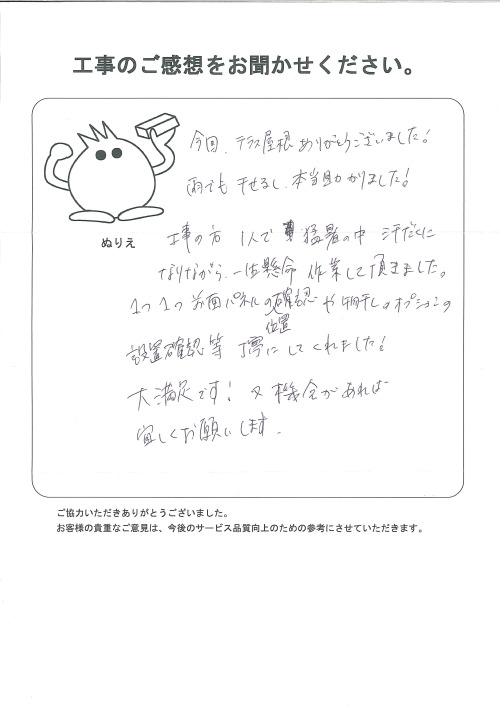 工事のご感想をお聞かせください。
今回、テラス屋根ありがとうございました!
雨でも干せるし、本当助かりました!
ぬりえ
工事の方 1人で 猛暑の中 汗だくに
なりながら、一生懸命 作業して頂きました。
1つ1つ 前面パネルの確認や物干しオプションの
位置
設置確認等 丁寧にしてくれました!
大満足です! 又機会があれば
宜しくお願いします。
ご協力いただきありがとうございました。
お客様の貴重なご意見は、今後のサービス品質向上のための参考にさせていただきます。